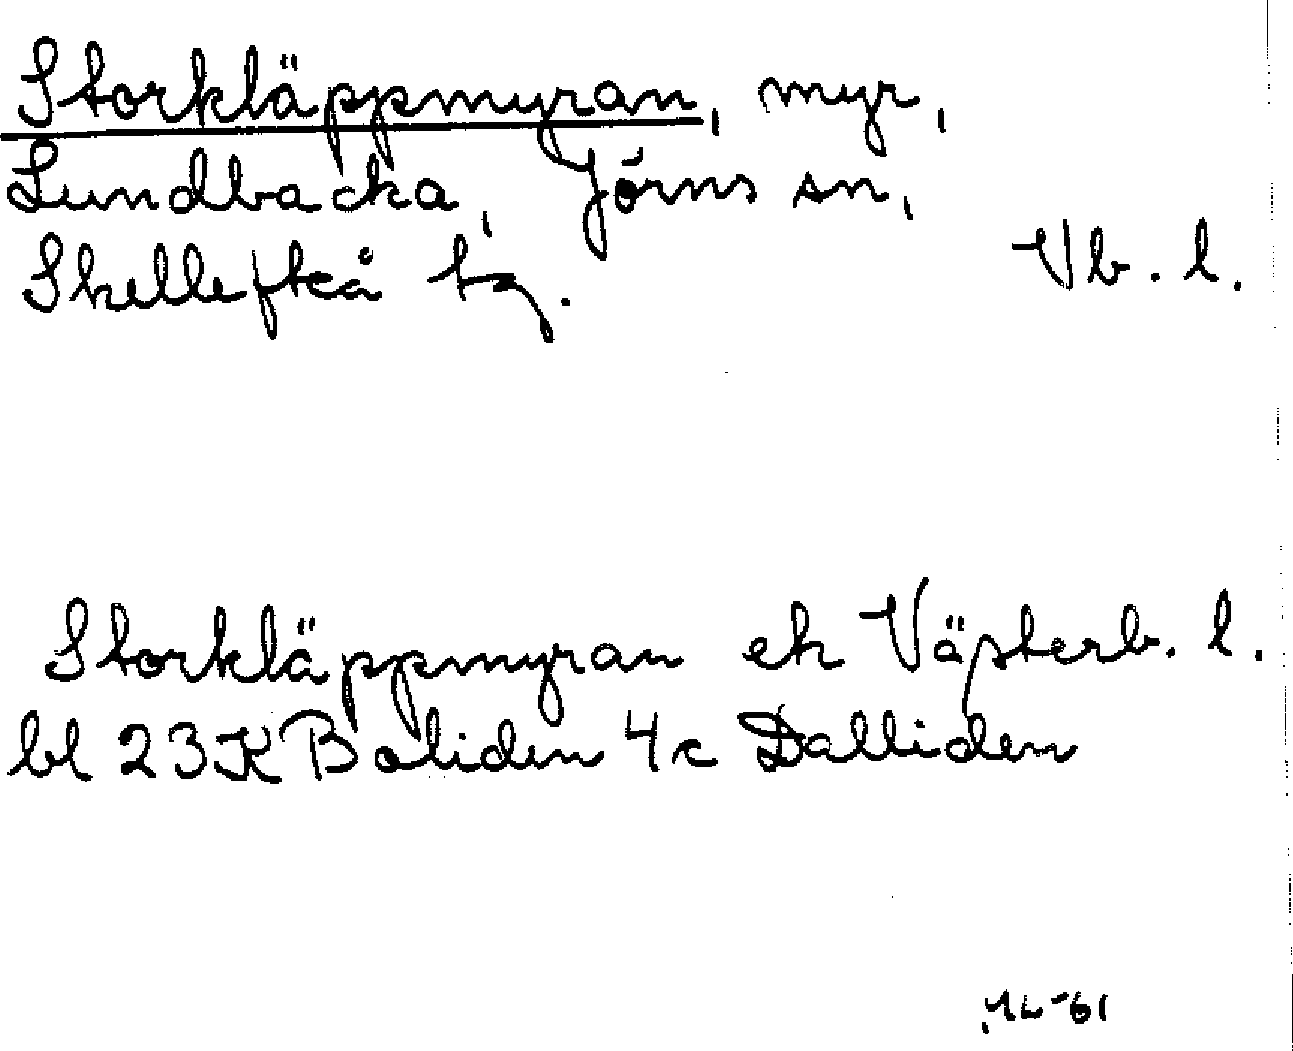 Storkläppmyran, myr,
Lundbacka, Jörns sn,
Skellefteå tg. Vb. l.
Storkläppmyran ek Västerb. l.
bl 23K Boliden 4c Dalliden